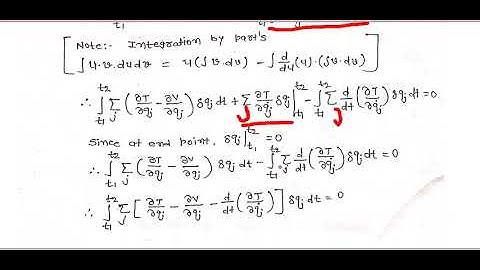 t₁
[Note:- Integration by part's
∫u.v.dudv = u(∫v.dv) - ∫ d/du (u).(∫v.dv)]
∴ ∫_{t₁}^{t₂} Σ_j (∂T/∂q_j - ∂V/∂q_j) δq_j dt + Σ_j ∂T/∂q̇_j δq_j |_{t₁}^{t₂} - ∫_{t₁}^{t₂} Σ_j d/dt (∂T/∂q̇_j) δq_j dt = 0
Since at end point, δq_j |_{t₁}^{t₂} = 0
∴ ∫_{t₁}^{t₂} Σ_j (∂T/∂q_j - ∂V/∂q_j) δq_j dt - ∫_{t₁}^{t₂} Σ_j d/dt (∂T/∂q̇_j) δq_j dt = 0
∴ ∫_{t₁}^{t₂} Σ_j [∂T/∂q_j - ∂V/∂q_j - d/dt (∂T/∂q̇_j)] δq_j dt = 0